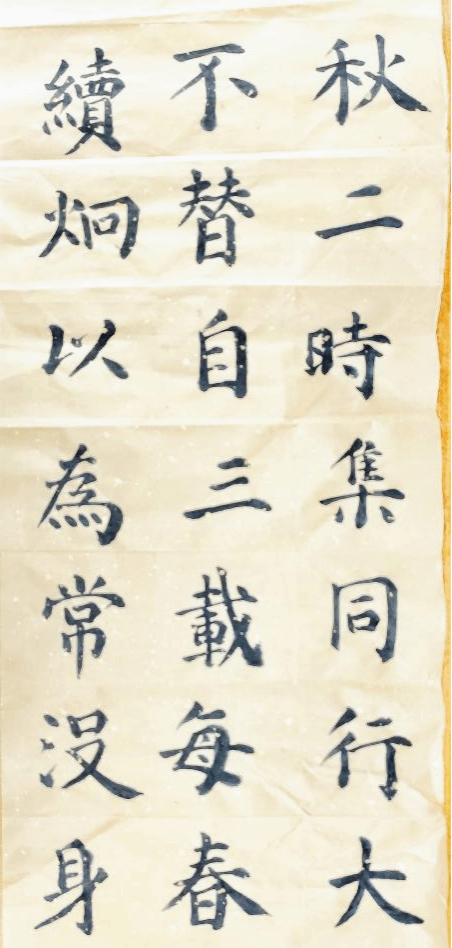 續炯以為常沒身
不替自三載每春
秋二時集同行大